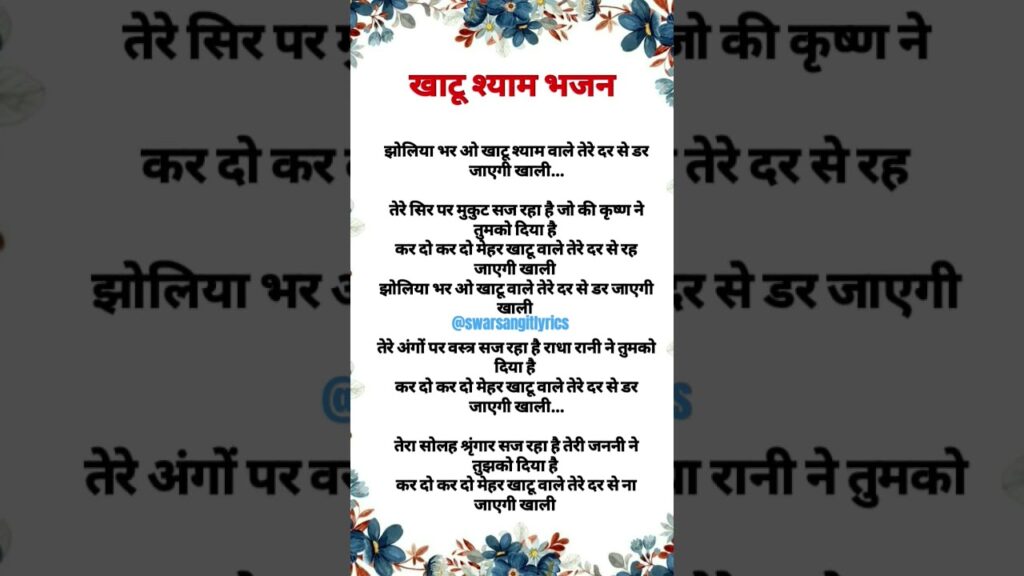 खाटू श्याम भजन
झोलिया भर ओ खाटू श्याम वाले तेरे दर से डर
जाएगी खाली...
तेरे सिर पर मुकुट सज रहा है जो की कृष्ण ने
तुमको दिया है
कर दो कर दो मेहर खाटू वाले तेरे दर से रह
जाएगी खाली
झोलिया भर ओ खाटू वाले तेरे दर से डर जाएगी
खाली
@swarsangitlyrics
तेरे अंगों पर वस्त्र सज रहा है राधा रानी ने तुमको
दिया है
कर दो कर दो मेहर खाटू वाले तेरे दर से डर
जाएगी खाली...
तेरा सोलह श्रृंगार सज रहा है तेरी जननी ने
तुझको दिया है
कर दो कर दो मेहर खाटू वाले तेरे दर से ना
जाएगी खाली